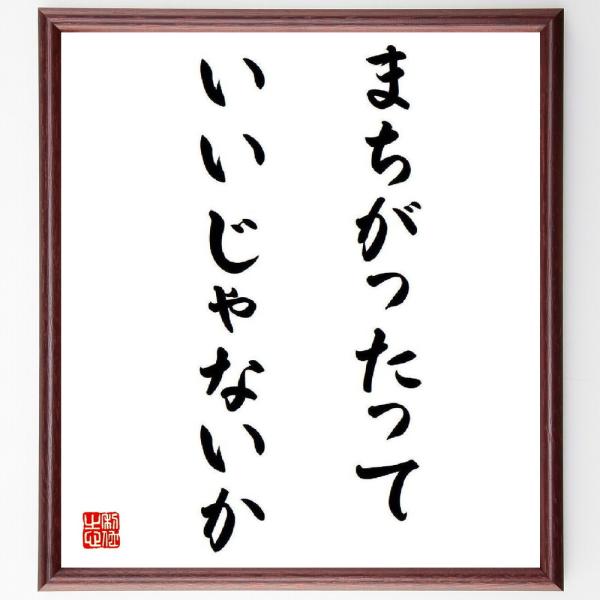 まちがったって
いいじゃないか